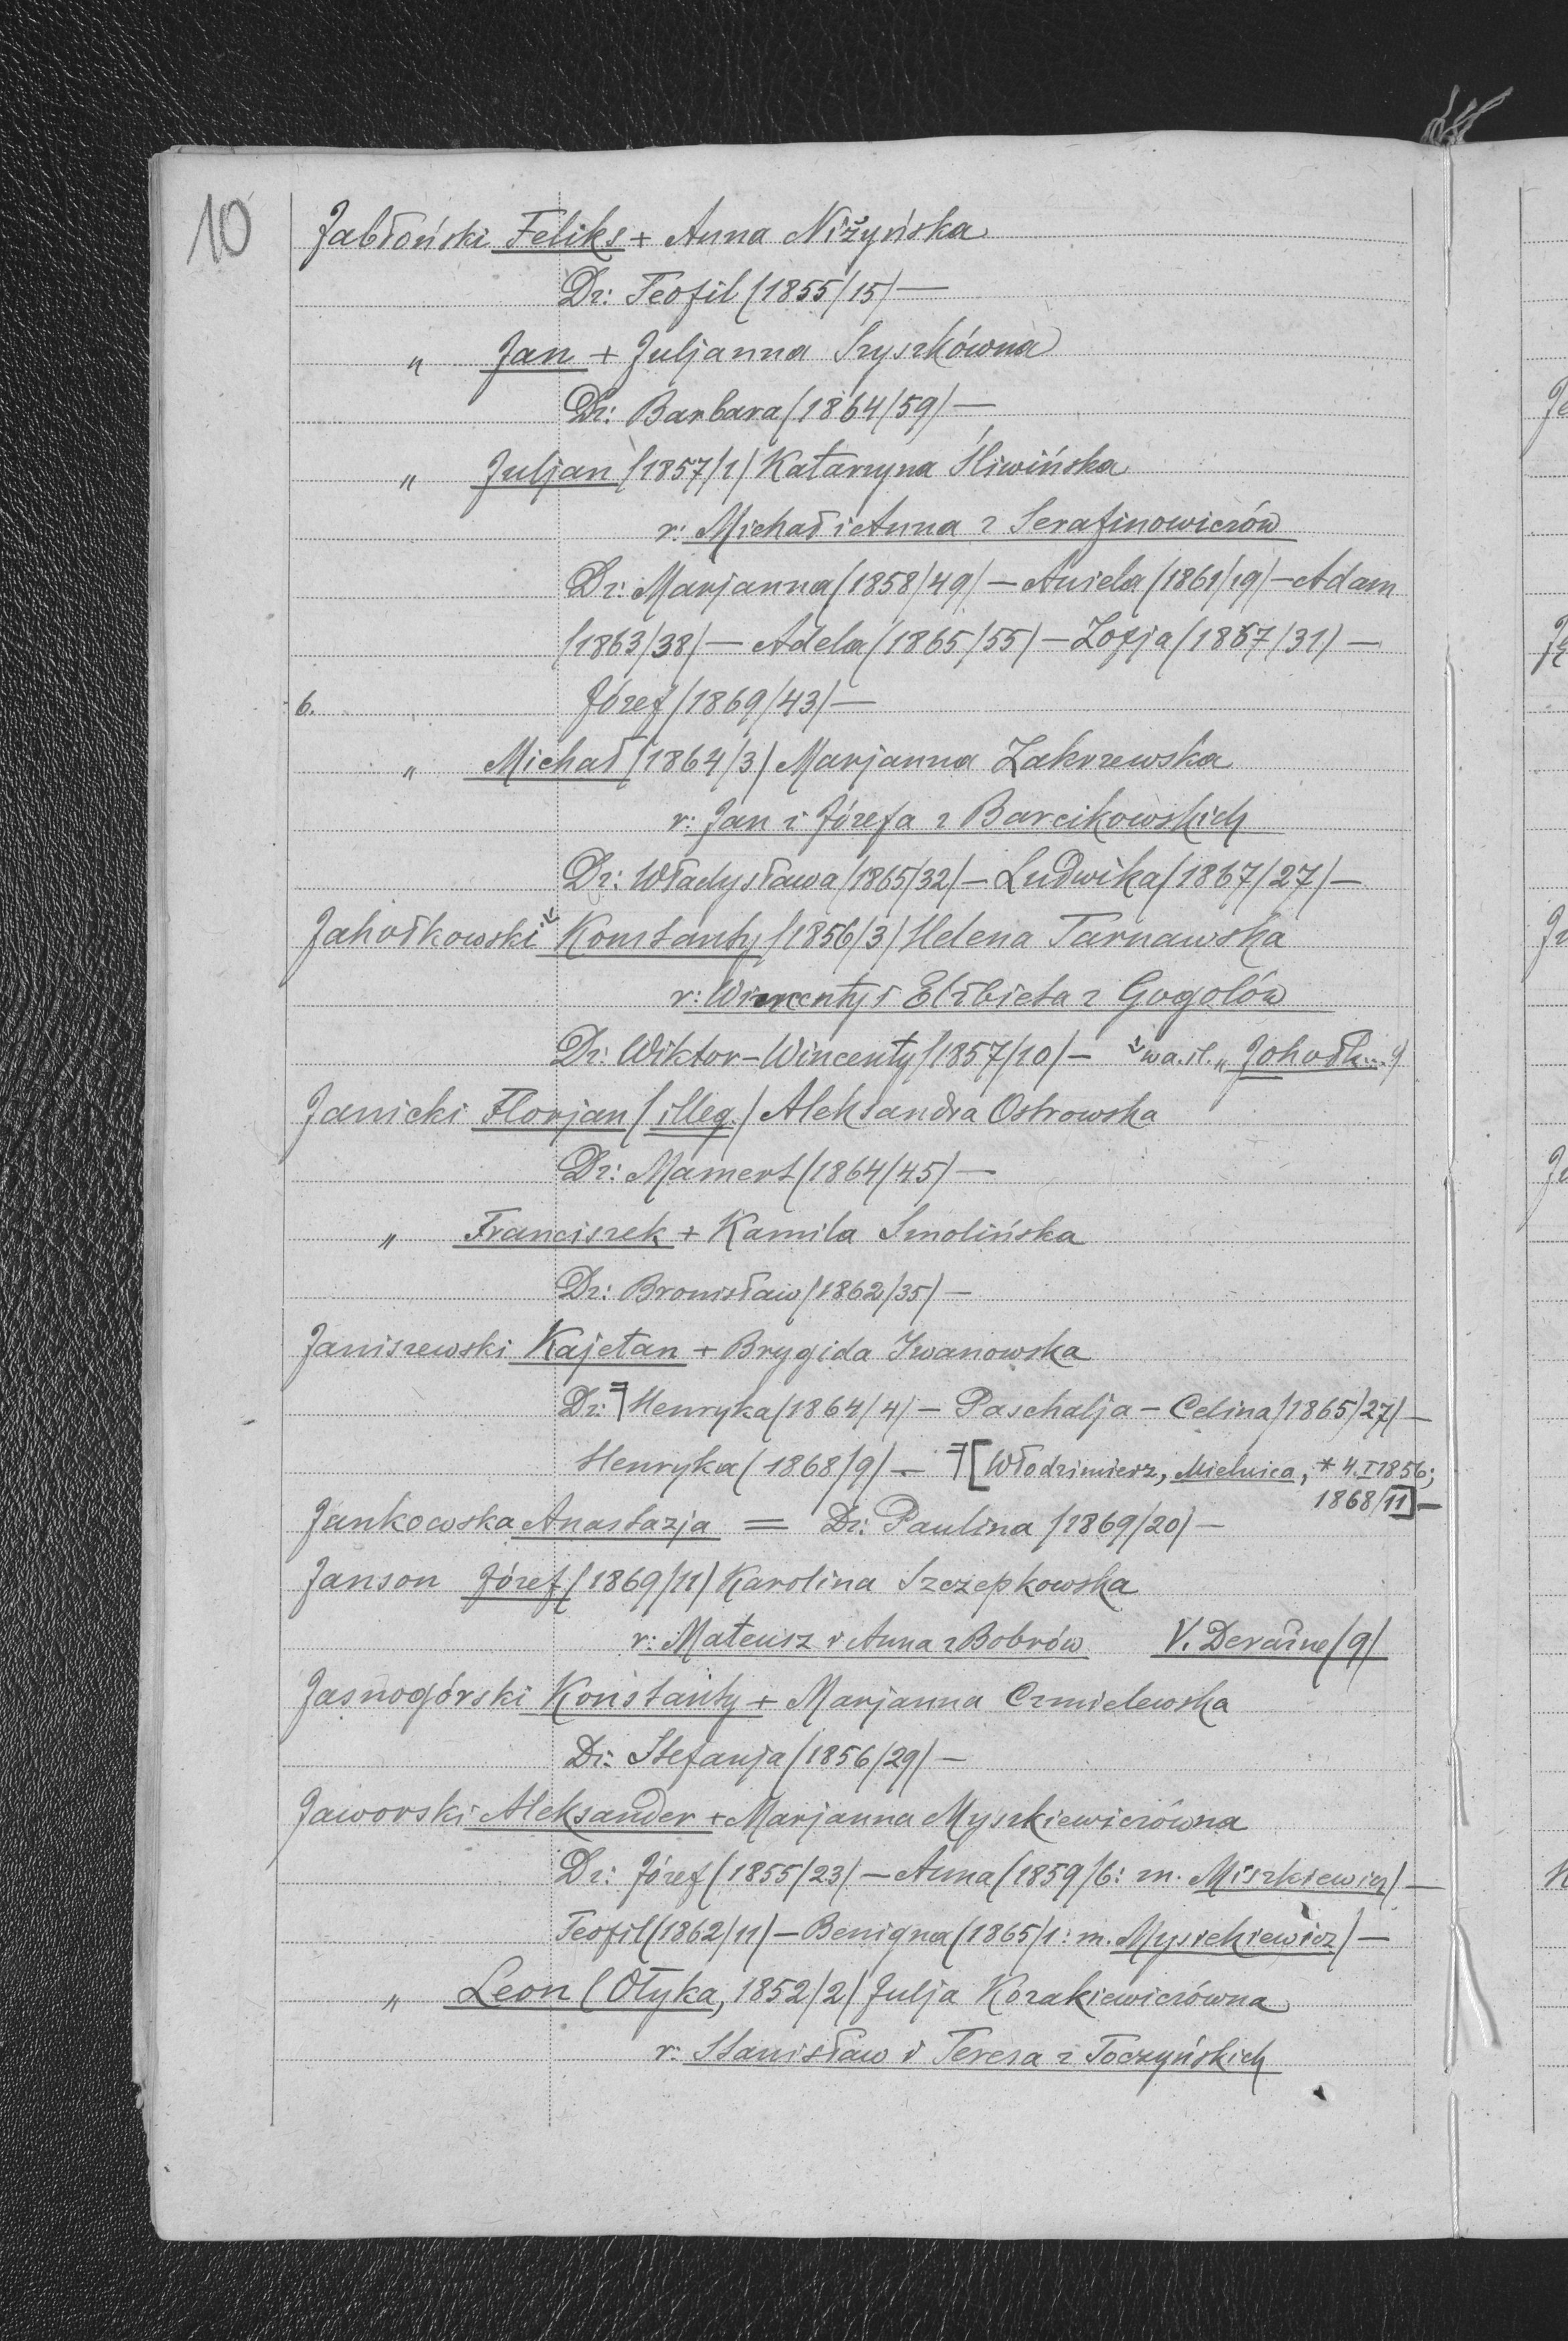 10
Jabłoński Feliks + Anna Niżyńska
Dz: Teofil (1855/15) —
" Jan + Juljanna Szyszkówna
Dz: Barbara (1864/59) —
" Juljan (1857/1) Katarzyna Śliwińska
r: Michał i Anna z Serafinowiczów
Dz: Marjanna (1858/49) — Aniela (1861/19) — Adam
(1863/38) — Adela (1865/55) — Zofja (1867/31) —
6. Józef (1869/43) —
" Michał (1864/3) Marjanna Zakrzewska
r: Jan i Józefa z Barcikowskich
Dz: Władysława (1865/32) — Ludwika (1867/27) —
Jahołkowski Konstanty (1856/3) Helena Tarnawska
r: Wincenty i Elżbieta z Gogolów
Dz: Wiktor-Wincenty (1857/10) — w a. śl. „Johołk...
Janicki Florjan (illeg.) Aleksandra Ostrowska
Dz: Mamert (1864/45) —
" Franciszek + Kamila Smolińska
Dz: Bronisław (1862/35) —
Janiszewski Kajetan + Brygida Iwanowska
Dz: Henryka (1864/4) — Paschalja - Celina (1865/27) —
Henryka (1868/9) — [Włodzimierz, Mielnica, * 4. I 1856;
1868/11] —
Jankowska Anastazja = Dz: Paulina (1869/20) —
Janson Józef (1869/11) Karolina Szczepkowska
r: Mateusz i Anna z Bobrów V. Deraźne (9)
Jasnogórski Konstanty + Marjanna Czmielewska
Dz: Stefanja (1856/29) —
Jaworski Aleksander + Marjanna Myszkiewiczówna
Dz: Józef (1855/23) — Anna (1859/6: m. Miszkiewicz) —
Teofil (1862/11) — Benigna (1865/1: m. Mysiekiewicz) —
" Leon (Ołyka, 1852/2) Julja Kozakiewiczówna
r: Stanisław i Teresa z Toczyńskich